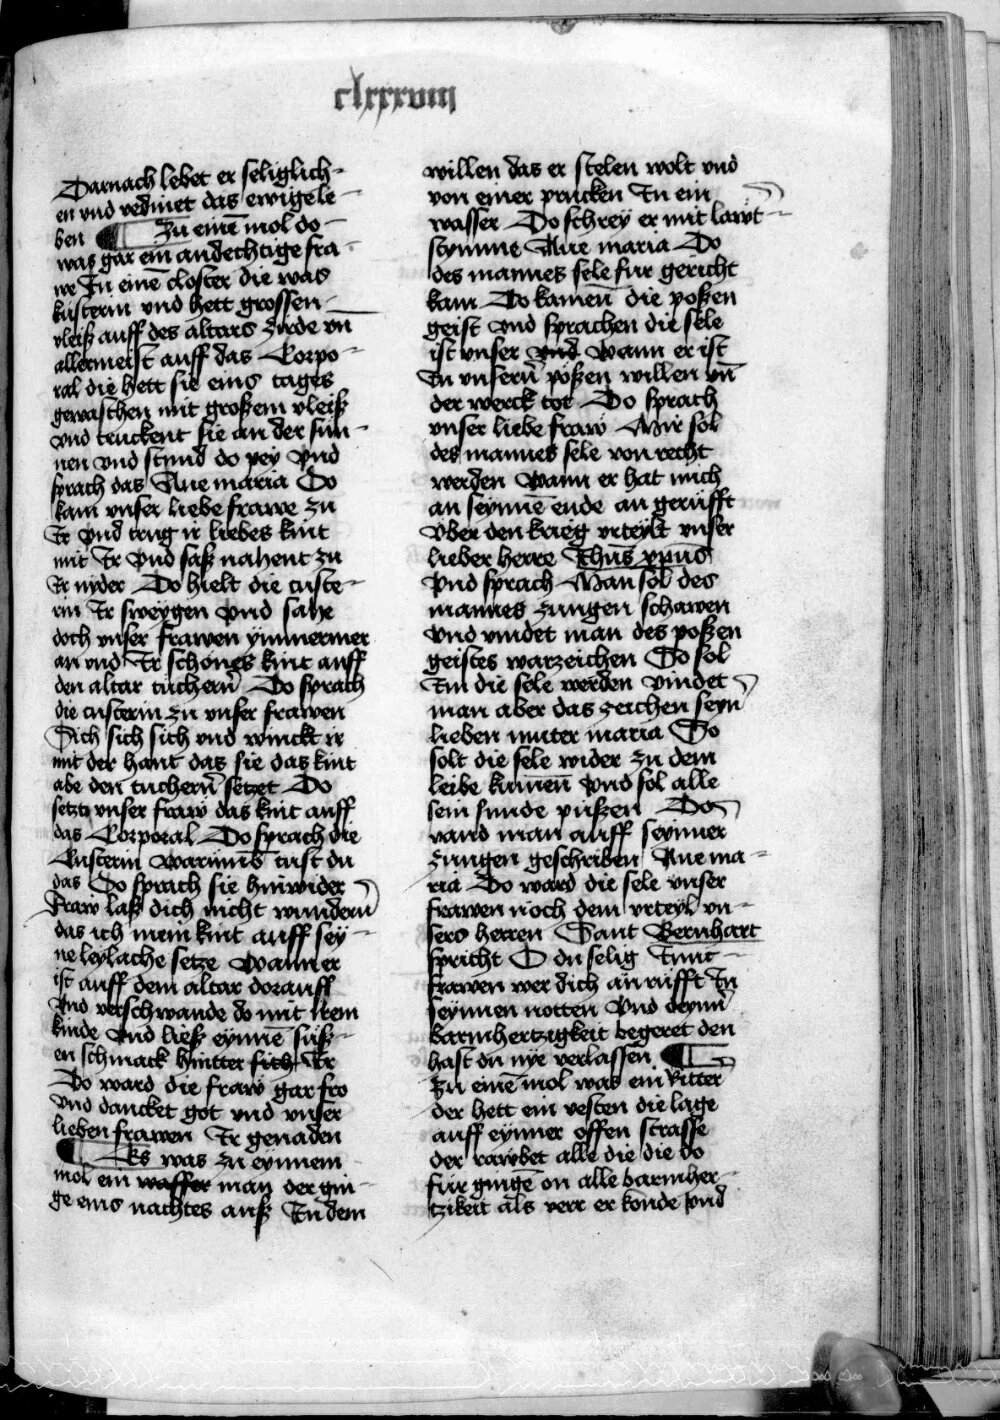 clxxxviij
Darnach lebet er seliglich-
en vnd verdinet das ewige le-
ben Zu einē mol do-
was gar ein andechtige fra-
we In einē closter die was
küsterin vnd hett grossen-
vleiß auff des altars zirde vn̄
allermeist auff das Corpo-
ral die hett sie eins tages
gewaschen mit großem vleiß
vnd truckent sie an der sün-
nen vnd stund do pey vnd
sprach das Aue maria Do
kam vnser liebe frawe zu
Ir vnd trug ir liebes kint
mit Ir vnd saß nahent zu
Ir nyder Do hielt die custe-
rin Ir sweygen vnd sahe
doch vnser frawen ymmermer
an vnd Ir schönes kint auff
den altar tüchern̄ Do sprach
die custerin zu vnser frawen
Sich sich sich vnd winckt ir
mit der hant das sie das kint
abe den tuchern̄ setzet Do
setzt vnser fraw das kint auff
das Corporal Do sprach die
Custerin warumb tust du
das Do sprach sie hinwider
Fraw laß dich nicht wundern
das ich mein kint auff sey-
ne leylache setze Wann er
ist auff dem altar dorauff
Vnd verschwande do mit Irem
kinde vnd ließ eynnē süß-
en schmack hintter sich Ir
Do ward die fraw gar fro
vnd dancket got vnd vnser
lieben frawen Ir genaden
Es was zu eynnem
mol ein wasser man der gin-
ge eins nachtes auß In dem
willen das er stelen wolt vnd
von einer prucken In ein
wasser Do schrey er mit lawt-
stymme Aue maria Do
des mannes sele fur gericht
kam Do kamen̄ die poßen
geist vnd sprachen die sele
ist vnser vnd wann er ist
In vnsern̄ pößen willen vn̄
der werck tot Do sprach
vnser liebe fraw Mir sol
des mannes sele von recht
werden Wann er hat mich
an seynnē ende an gerüfft
Vber den krieg vrteylt vnser
lieber herre Ihus xpūs
vnd sprach Man sol des
mannes zungen schawen
vnd vindet man des poßen
geistes warzeichen So sol
Im die sele werden vindet
man aber das zeichen seyn̄
lieben muter maria So
solt die sele wider zu dem
leibe kumen̄ vnd sol alle
sein sunde püßen Do
vand man auff seynner
zungen geschriben Aue ma-
ria Do ward die sele vnser
frawen noch dem vrteyl vn-
sers herren Sant Bernhart
spricht O du selig Iunc-
frawen wer dich an rüfft In
seynnen notten Vnd deynn̄
barmhertzigkeit begeret den
hast du nye verlassen
Zu einē mol was ein Ritter
der hett ein vesten die lage
auff eynner offen strasse
der rawbet alle die die do
für gingē on alle barmher-
tzikeit als verr er konde vnd